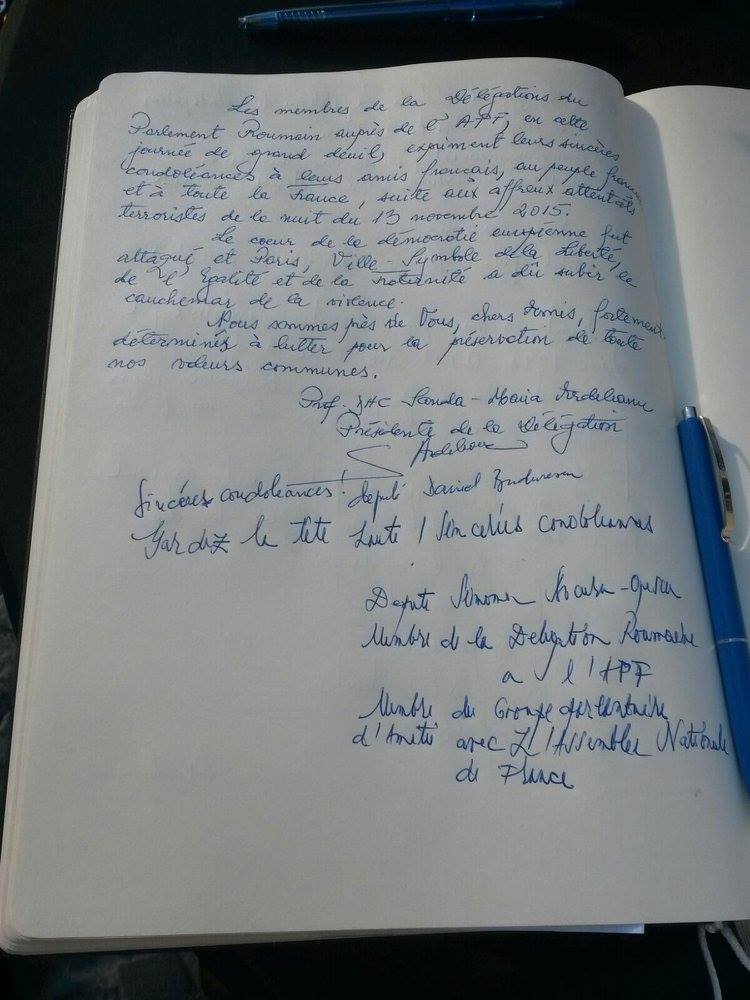 Les membres de la Délégations du
Parlement Roumain auprès de l'APF, en cette
journée de grand deuil, expriment leurs sincères
condoléances à leurs amis français, au peuple français
et à toute la France, suite aux affreux attentats
terroristes de la nuit du 13 novembre 2015.
Le coeur de la démocratie européenne fut
attaqué et Paris, Ville-Symbole de la Liberté,
de l'Egalité et de la Fraternité a dû subir le
cauchemar de la violence.
Nous sommes près de Vous, chers Amis, fortement
déterminés à lutter pour la préservation de toute
nos valeurs communes.
Prof. DHC Sanda-Maria Ardeleanu
Présidente de la Délégation
Sincères condoléances! député Daniel
Gardez la tête haute! Sincères condoléances
Députe
Membre de la Delegation Roumaine
a l'APF
Membre du Groupe
d'Amitié avec L'Assemblee Nationale
de France